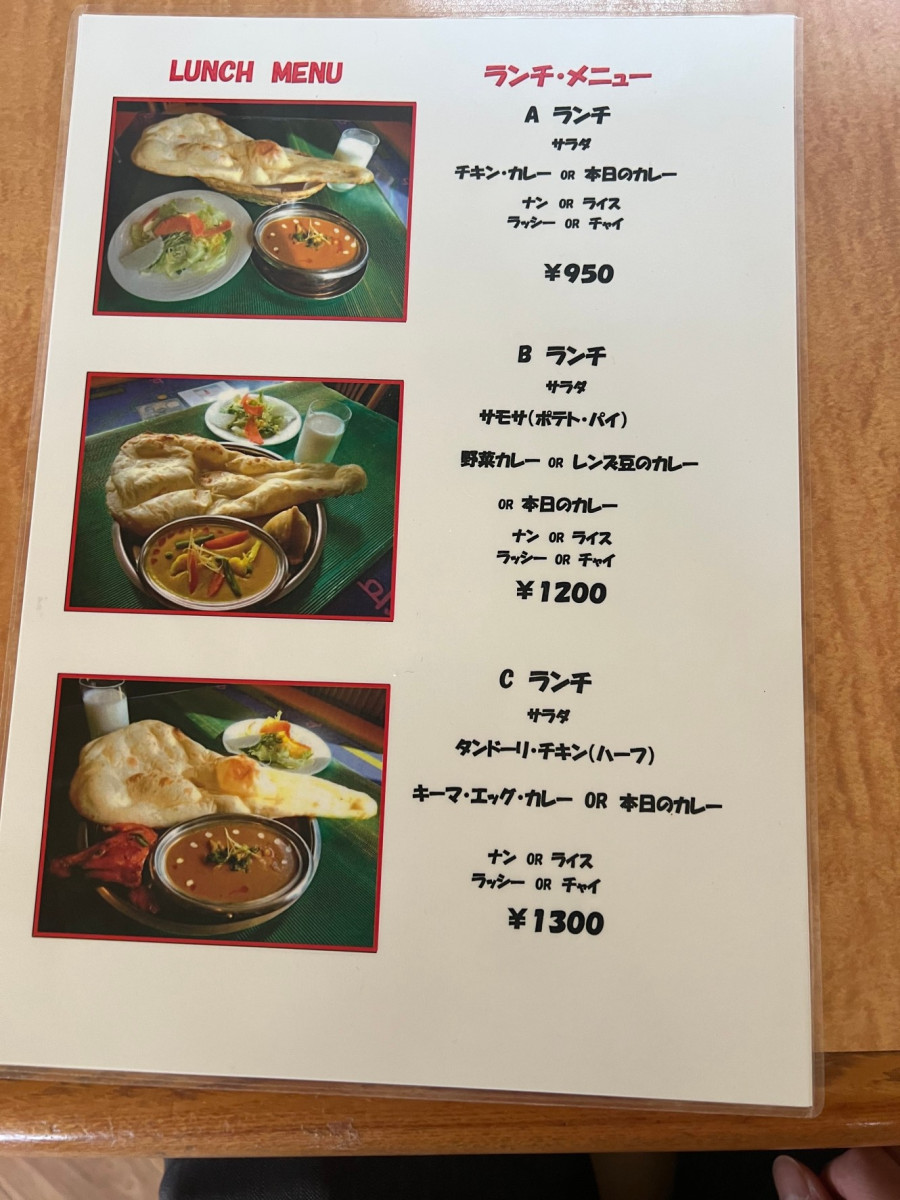 LUNCH MENU
ランチ・メニュー
A ランチ
サラダ
チキン・カレー OR 本日のカレー
ナン OR ライス
ラッシー OR チャイ
¥950
B ランチ
サラダ
サモサ(ポテト・パイ)
野菜カレー OR レンズ豆のカレー
OR 本日のカレー
ナン OR ライス
ラッシー OR チャイ
¥1200
C ランチ
サラダ
タンドーリ・チキン(ハーフ)
キーマ・エッグ・カレー OR 本日のカレー
ナン OR ライス
ラッシー OR チャイ
¥1300